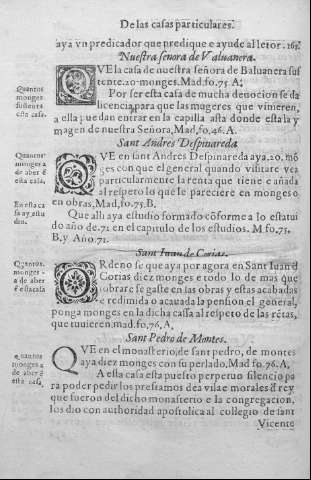 De las casas particulares.
aya vn predicador que predique e ayude al letor. 163.
Nuestra señora de Valuanera.
QVE la casa de nuestra señora de Baluanera sus
tente.20.monges.Mad.fo.75 A,
Quantos
monges
sustenta
esta casa.
Por ser esta casa de mucha deuocion se da
licencia, para que las mugeres que vinieren,
a ella puedan entrar en la capilla asta donde esta la y
magen de nuestra Señora, Mad,fo.46.A.
Sant Andres Despinareda
QVE en sant Andres Despinareda aya,20.mõ
ges con que el general quando visitare vea
particularmente la renta que tiene e añada
al respeto lo que le pareciere en monges o
en obras, Mad,fo,75,B.
Quantos
monges a
de aber ē
esta casa.
Que alli aya estudio formado cõforme a lo estatui
do año de.71 en el capitulo de los estudios. M fo.75.
B,y Año.71.
En esta ca
sa ay estu
dio.
Sant Iuan de Corias.
ORdeno se que aya por agora en Sant Iuan d
Corias diez monges e todo lo de mas que
sobrare se gaste en las obras y estas acabadas
e redimida o acauada la pension el general,
ponga monges en la dicha cassa al respeto de las rētas,
que tuuieren, mad.fo,76,A,
Quantos
monges
a de aber
ē esta casa
Sant Pedro de Montes.
QVE en el monasterio, de sant pedro, de montes
aya diez monges con su perlado, Mad fo.76.A,
Quantos
monges a
de aber ē
esta casa.
A esta casa esta puesto perpetuo silencio pa
ra poder pedir los prestamos de a vilae morales ē rrey
que fueron del dicho monasterio e la congregacion,
los dio con authoridad apostolica al collegio de sant
Vicente